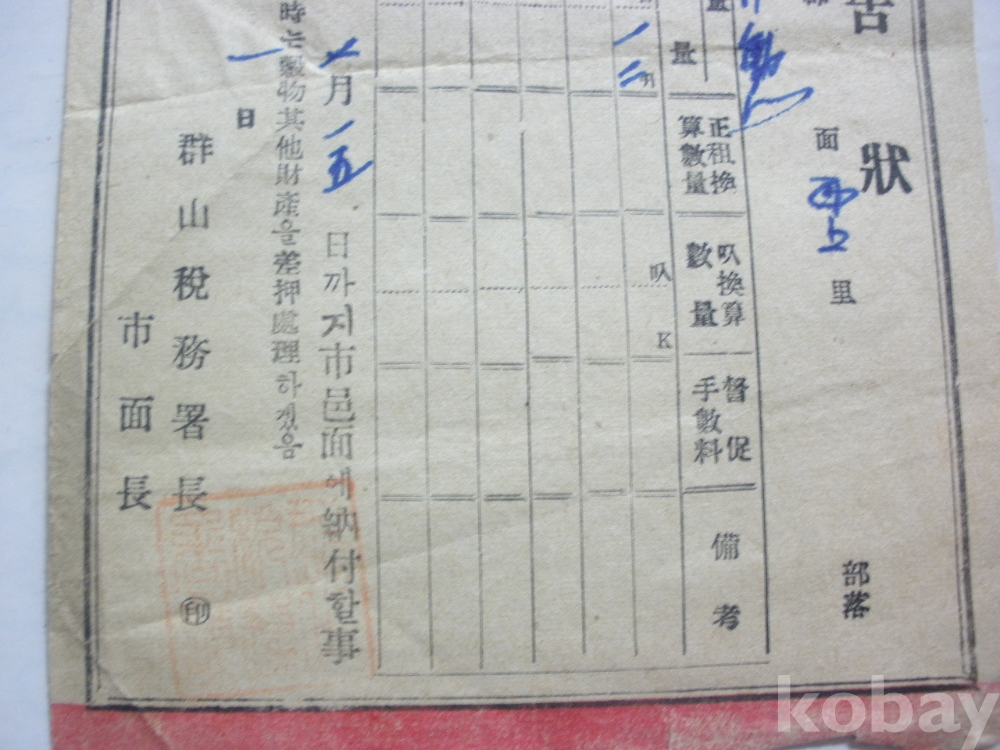 告狀
面 里 部落
量
正租換算數量
叺換算數量
督促手數料
備考
量
一二 叺
K
月一五日까지市邑面에納付할事
時는穀物其他財產을差押處理하겠음
一日
群山稅務署長 ㊞
市面長
kobay